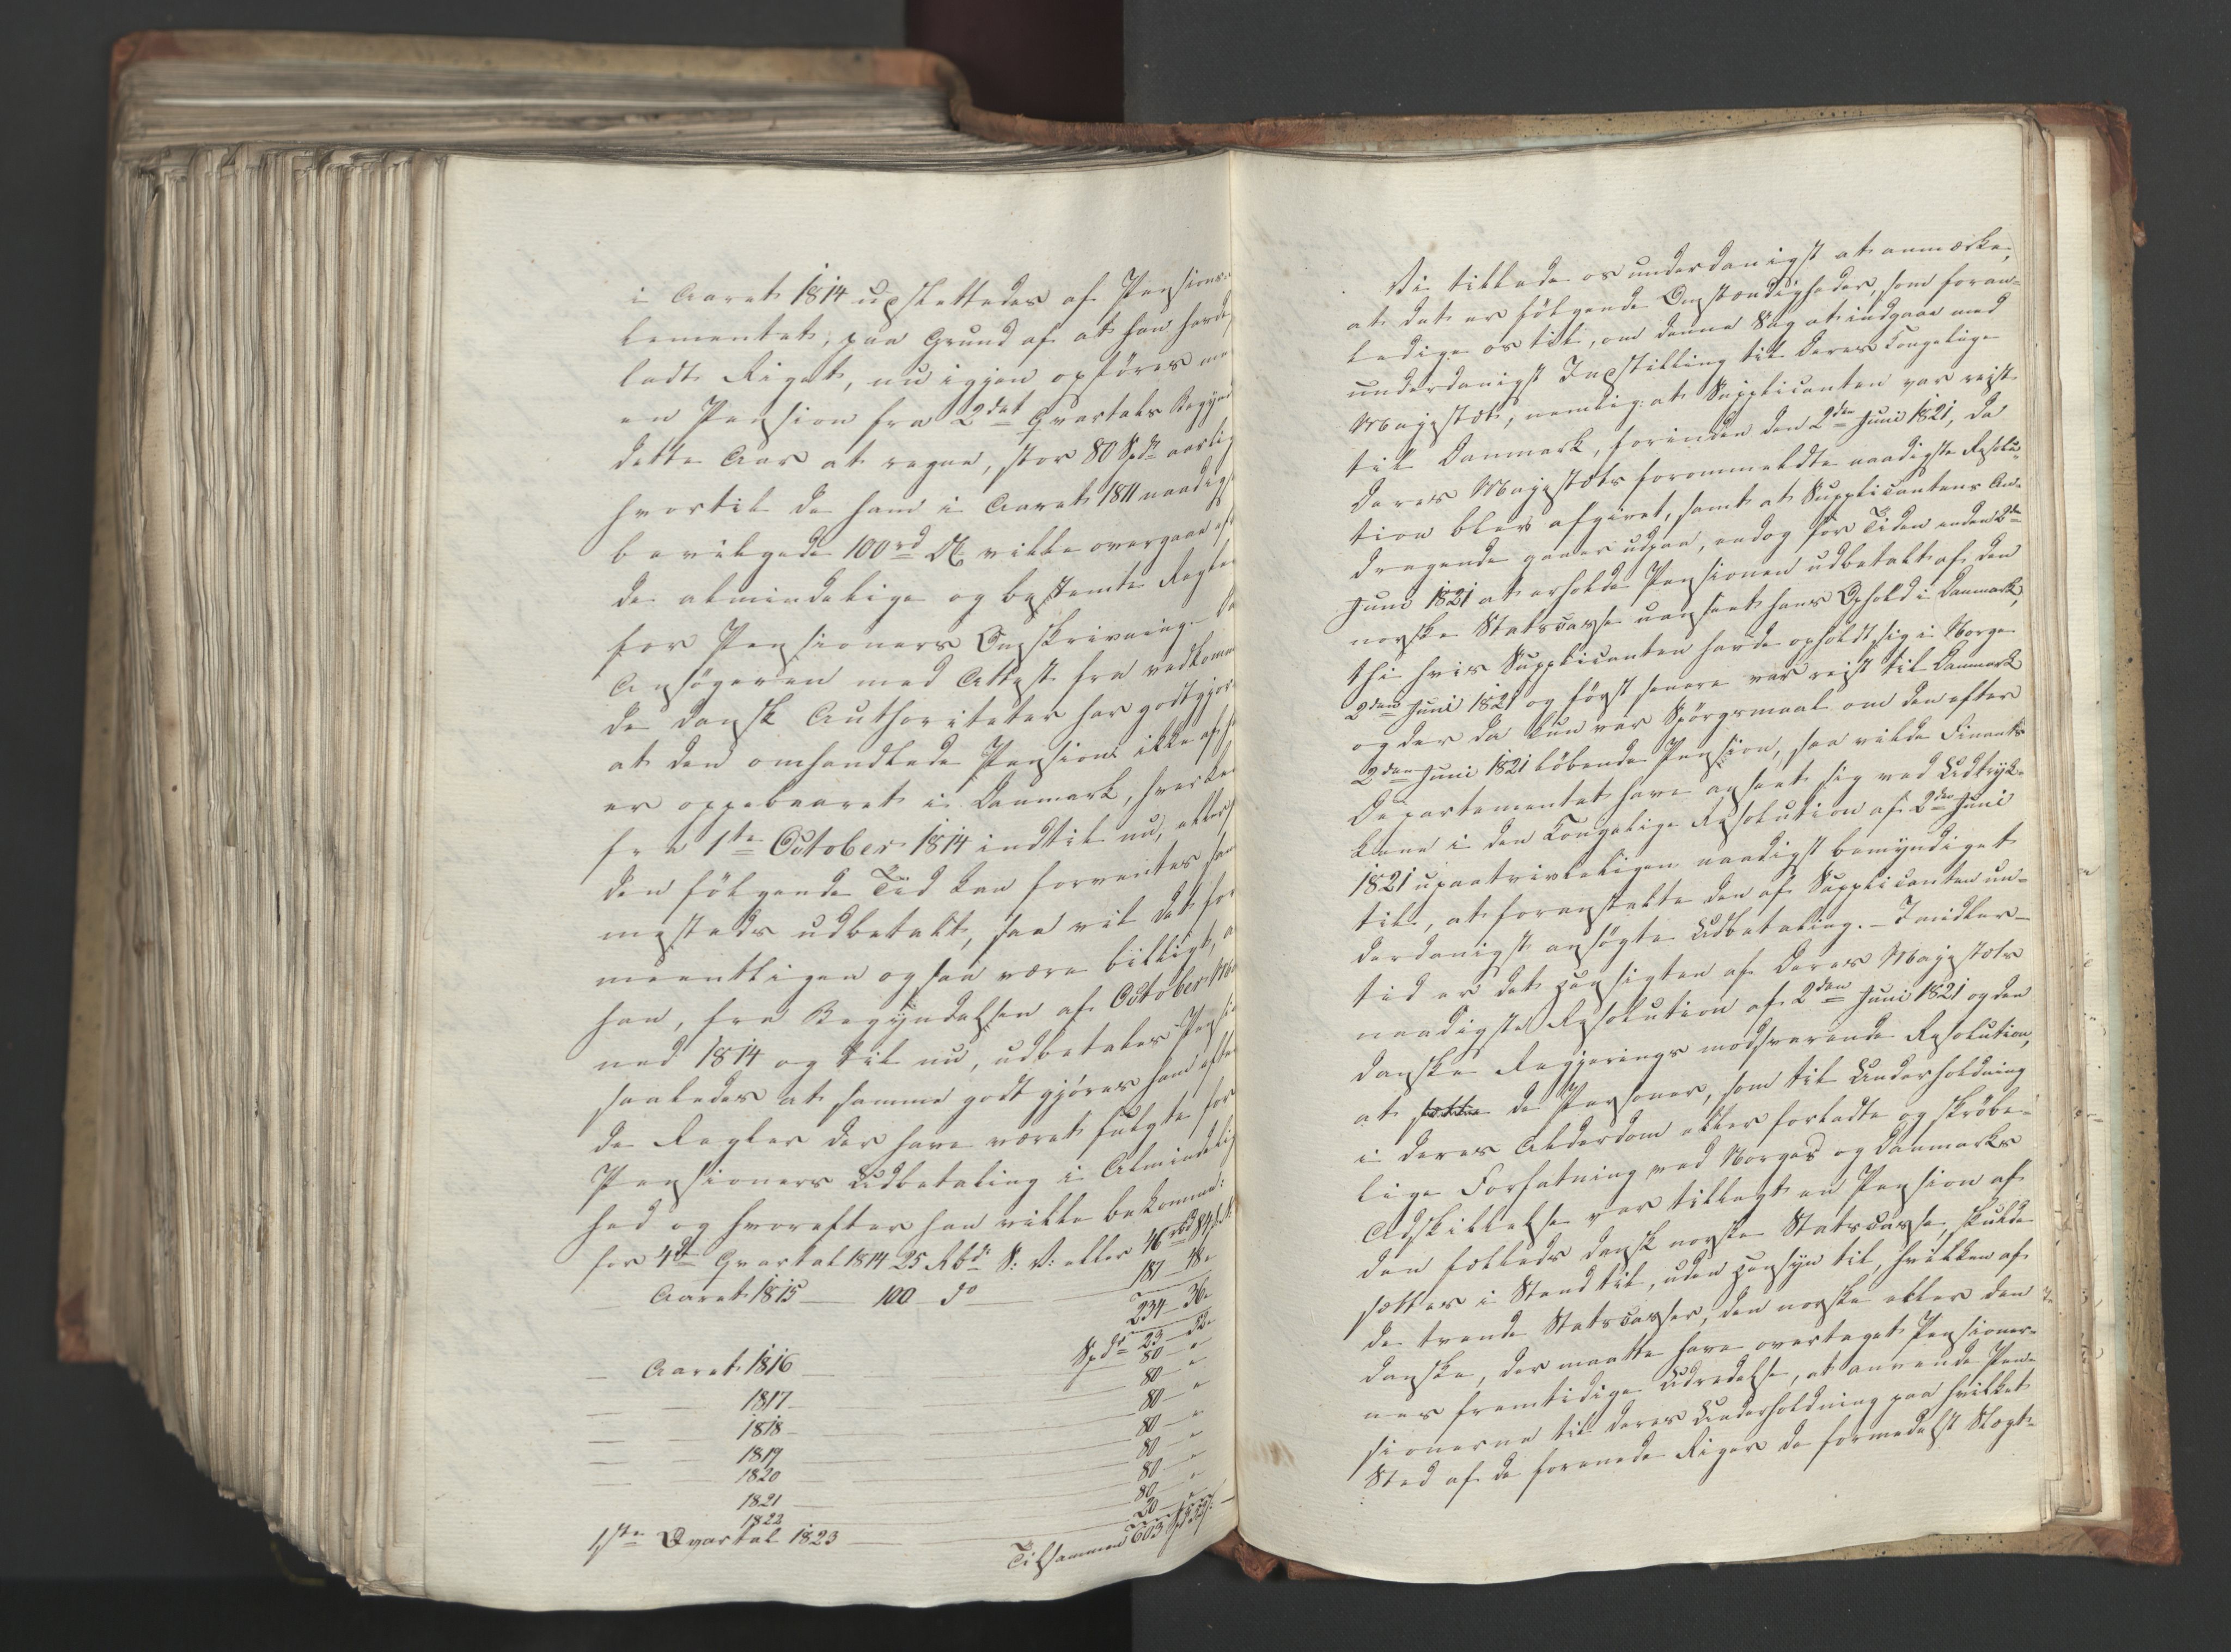 i Aaret 1814 udslettedes af Pensions-
lementet, paa Grund af at han havde
ladt Riget, nu igjen opføres me
en Pension fra 2det Qvartals Begynd
dette Aar at regne, stor 80 Spd aarlig
hvortil de ham i Aaret 1811 naadigst
bevilgede 100 rd ville overgaae ef
de almindelige og bestemte Regler
for Pensioners Omskrivning. Da
Ansøgeren med Attest fra vedkomm
de dansk Authoriteter har godtgjort
at den omhandlede Pension ikke af
er oppebaaret i Danmark, hverken
fra 1ste October 1814 indtil nu, eller
den følgende Tid kan forventes sam
mesteds udbetalt, saa vil det for
meentligen ogsaa være billigt, a
han, fra Begyndelsen af October Ma
ned 1814 og til nu, udbetales Pensio
saaledes at samme godtgjøres ham efter
de Regler der have været fulgte for
Pensioners Udbetaling i Almindelig
hed og hvorefter han ville bekomme:
for 4de Qvartal 1814 25 Rbd S: V: eller 46 rbd 84 s
Aaret 1815 — 100 do — 187 — 48
234 — 36
Spd 23 — 52
— Aaret 1816 — 80 — "
— — 1817 — 80 — "
— — 1818 — 80 — "
— — 1819 — 80 — "
— — 1820 — 80 — "
1821 — 80 — "
1822 — 80 — "
1ste Qvartal 1823 — 20 — "
Tilsammen 603 Spd 52 s: —
Vi tillade os underdanigst at anmærke,
at det er følgende Omstændigheder, som foran-
ledige os til, om denne Sag at indgaae med
underdanigst Indstilling til Deres Kongelige
Majestæt, nemlig: at Supplicanten var reist
til Danmark, forinden den 2den Juni 1821, da
Deres Majestæts forommeldte naadigste Resolu-
tion blev afgivet, samt at Supplicantens An-
dragende gaaer udpaa, endog for Tiden inden 2den
Juni 1821 at erholde Pensionen udbetalt af den
norske Statscasse uanseet hans Ophold i Danmark,
thi hvis Supplicanten havde opholdt sig i Norge
2den Juni 1821 og først senere var reist til Danmark
og der da kun var Spørgsmaal om den efter
2den Juni 1821 løbende Pension, saa vilde Finants
Departementet have anseet sig ved Udtryk-
kene i den Kongelige Resolution af 2den Juni
1821 upaatvivleligen naadigst bemyndiget
til, at foranstalte den af Supplicanten un-
derdanigst ansøgte Udbetaling. — Imidler-
tid er det Hensigten af Deres Majestæts
naadigste Resolution af 2den Juni 1821 og den
danske Regjerings modsvarende Resolution,
at de Personer, som til Underholdning
i deres Alderdom eller forladte og skrøbe-
lige Forfatning ved Norges og Danmarks
Adskillelse var tillagt en Pension af
den fælleds dansk norske Statscasse, skulde
sættes i Stand til, uden Hensyn til, hvilken af
de tvende Statscasser, den norske eller den
danske, der maatte have overtaget Pensioner-
nes fremtidige Udredelse, at anvende Pen-
sionerne til deres Underholdning paa hvilket
Sted af de forenede Riger de formedelst Slægt-